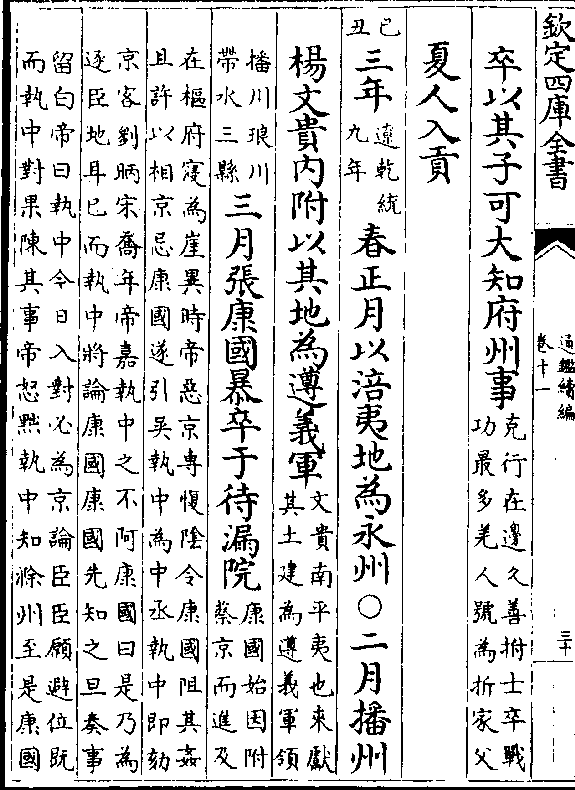 欽定四庫全書
通鑑續編
卷十一
三十
卒以其子可大知府州事
克行在邊久善拊士卒戰
功最多羌人號為折家父
夏人入貢
己丑
三年
遼乾統
九年
春正月以涪夷地為永州○二月播州
楊文貴内附以其地為遵義軍
文貴南平夷也來獻
其土建為遵義軍領
播川琅川
帶水三縣
三月張康國暴卒于待漏院
康國始因附
蔡京而進及
在樞府寖為崖異時帝惡京專愎陰令康國阻其姦
且許以相京忌康國遂引吳執中為中丞執中即劾
京客劉昞宋喬年帝嘉執中之不阿康國曰是乃為
逐臣地耳已而執中將論康國康國先知之旦奏事
留白帝曰執中今日入對必為京論臣臣願避位既
而執中對果陳其事帝怒黜執中知滁州至是康國